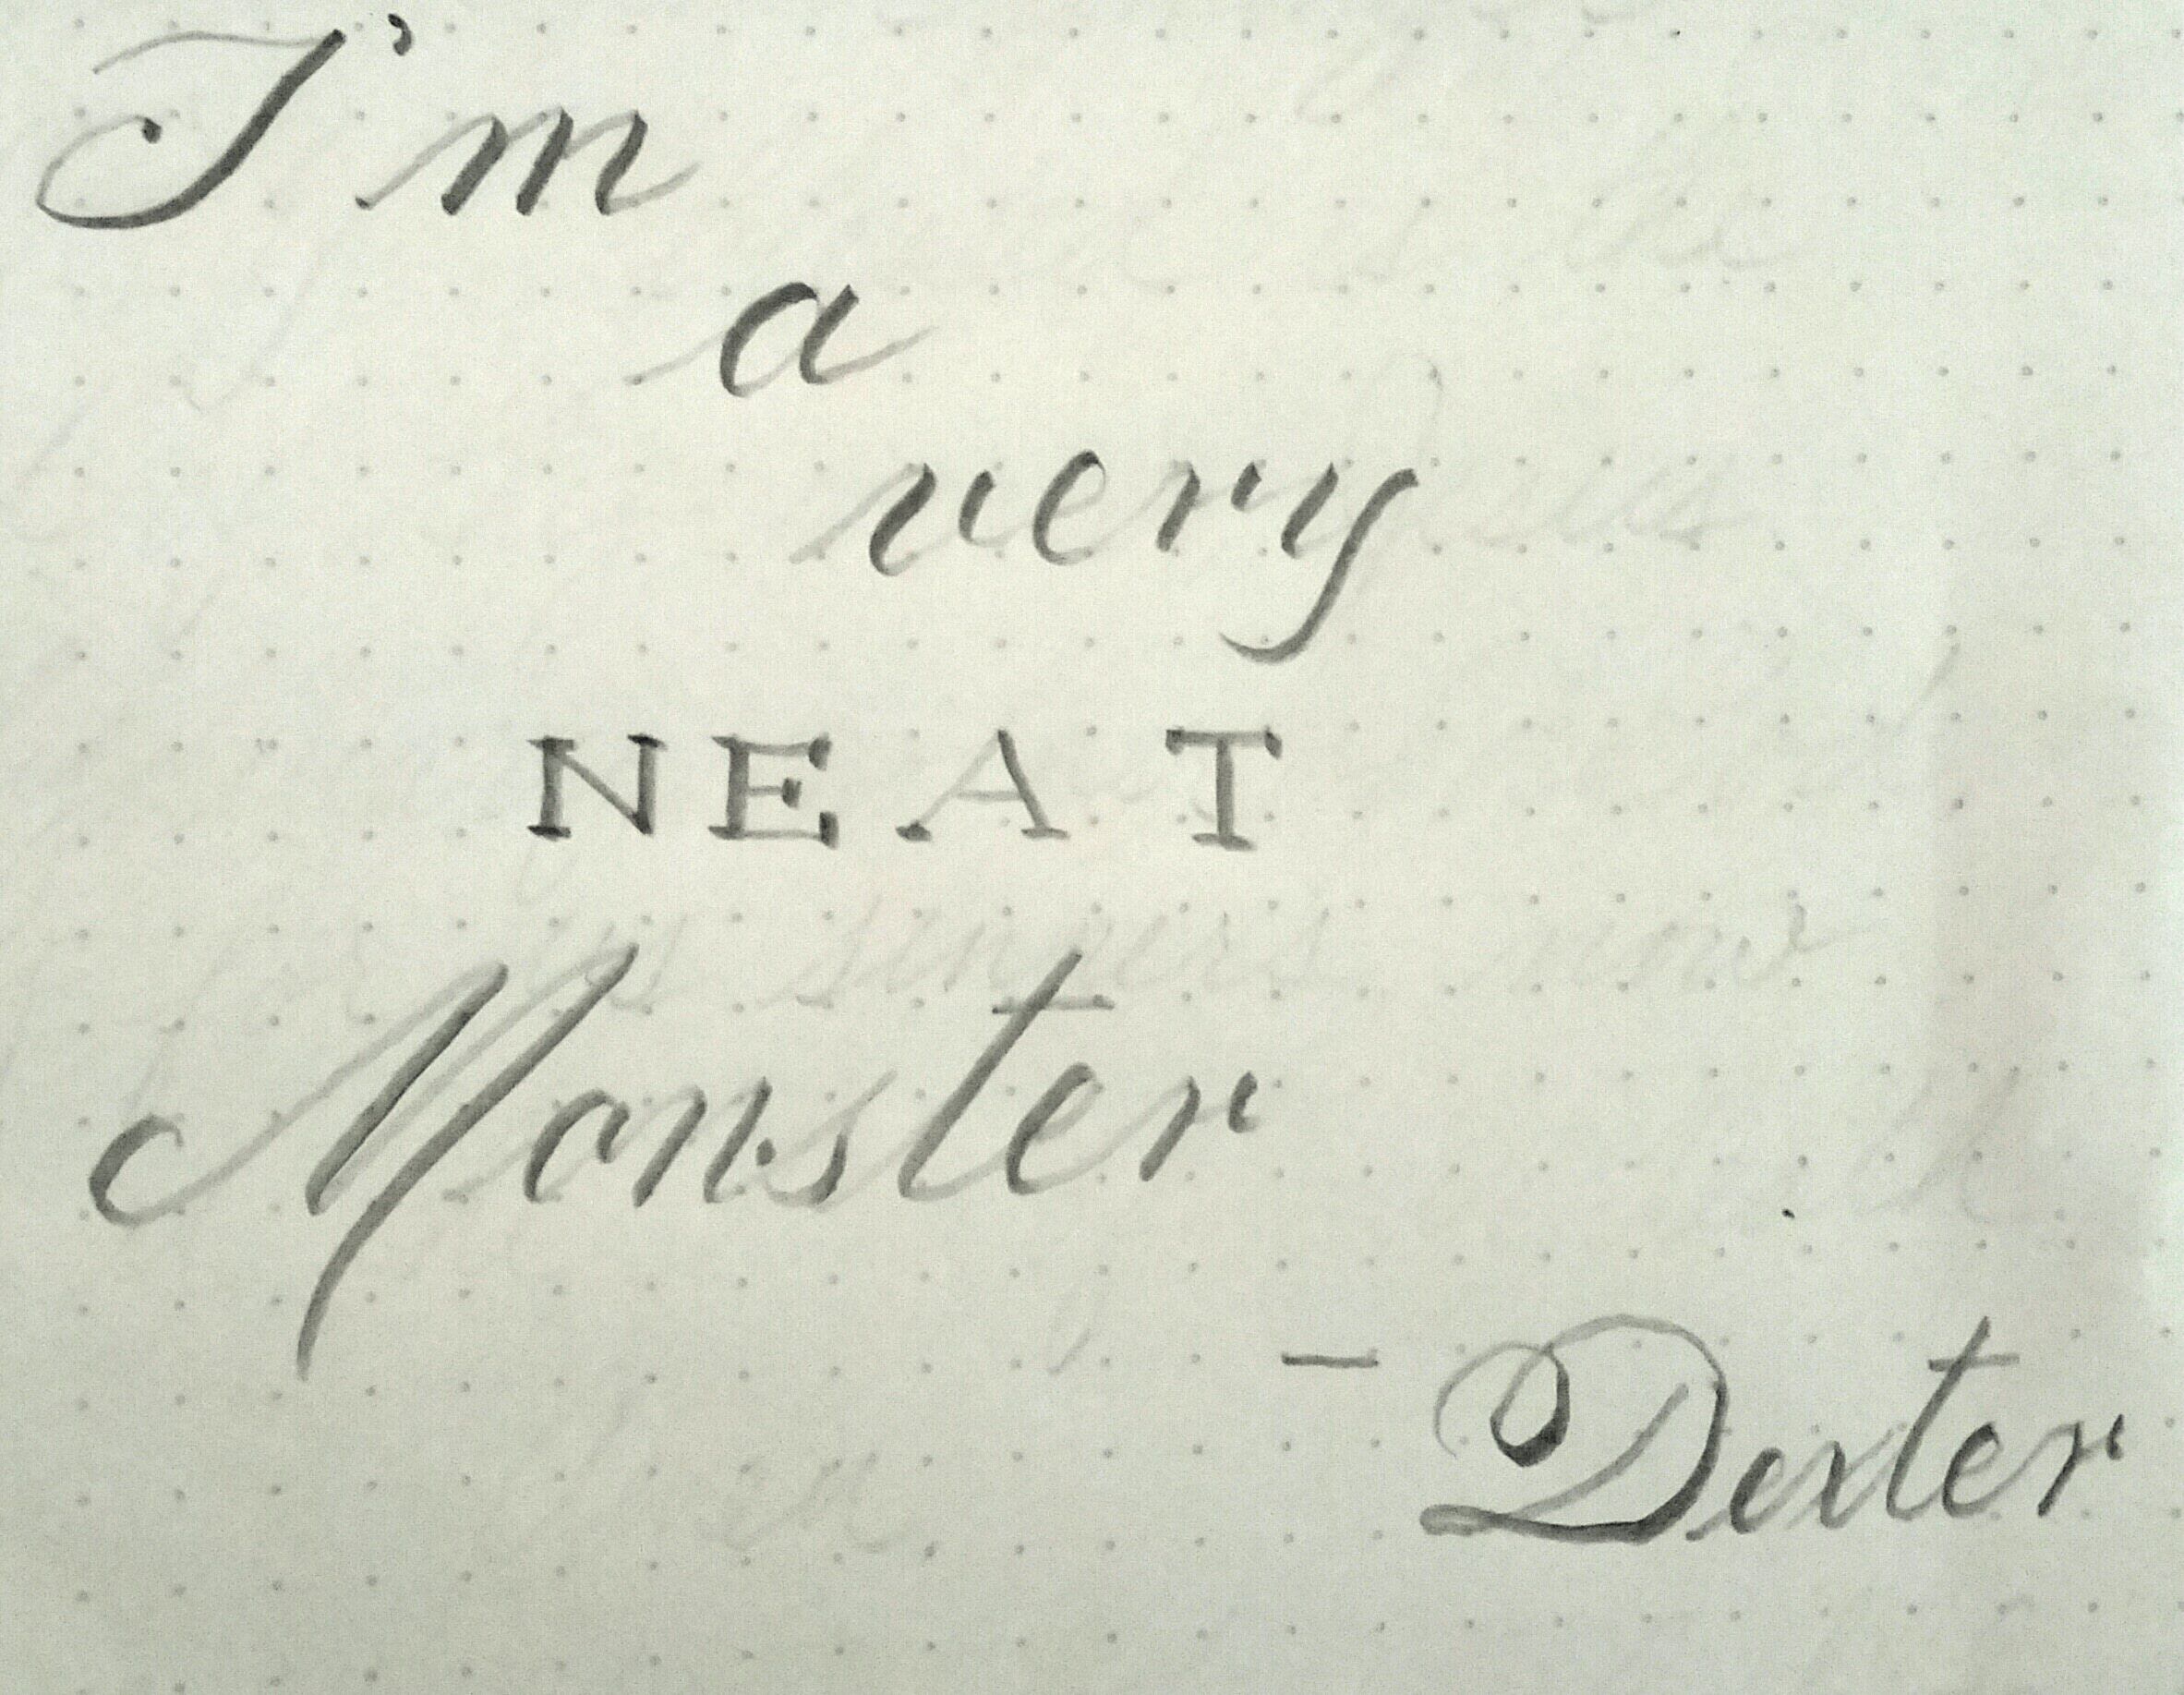 I'm
a
very
NEAT
Monster
- Dexter